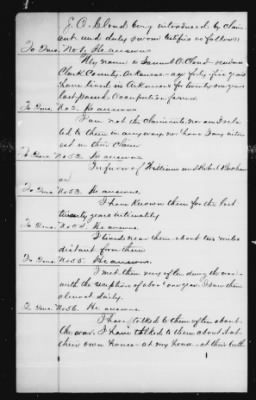 E. O. Cloud being introduced by claim
ant and duly sworn testifies as follows
To Ques. No 1, He answers
My name is Samuel O. Cloud reside in
Clark County, Arkansas age fifty five years
have lived in Arkansas for twenty one years
last passed. Occupation farmer
To Ques. No 2. He answers
I am not the Claimant nor am I rela
ted to them in any way nor have I any inter
est in their claim
To Ques. No 52. He answers
In favor of William and Robert
To Ques. No 53. He answers
I have Known them for the last
twenty years intimately
To Ques. No 54. He answers
I lived near them about two miles
distant from them
To Ques. No 55. He answers
I met them very often during the war
with the exception of about one year I saw them
almost daily.
To Ques. No 56. He answers
I have talked to them often about
the war. I have talked to them about it at
their own house at my house at their